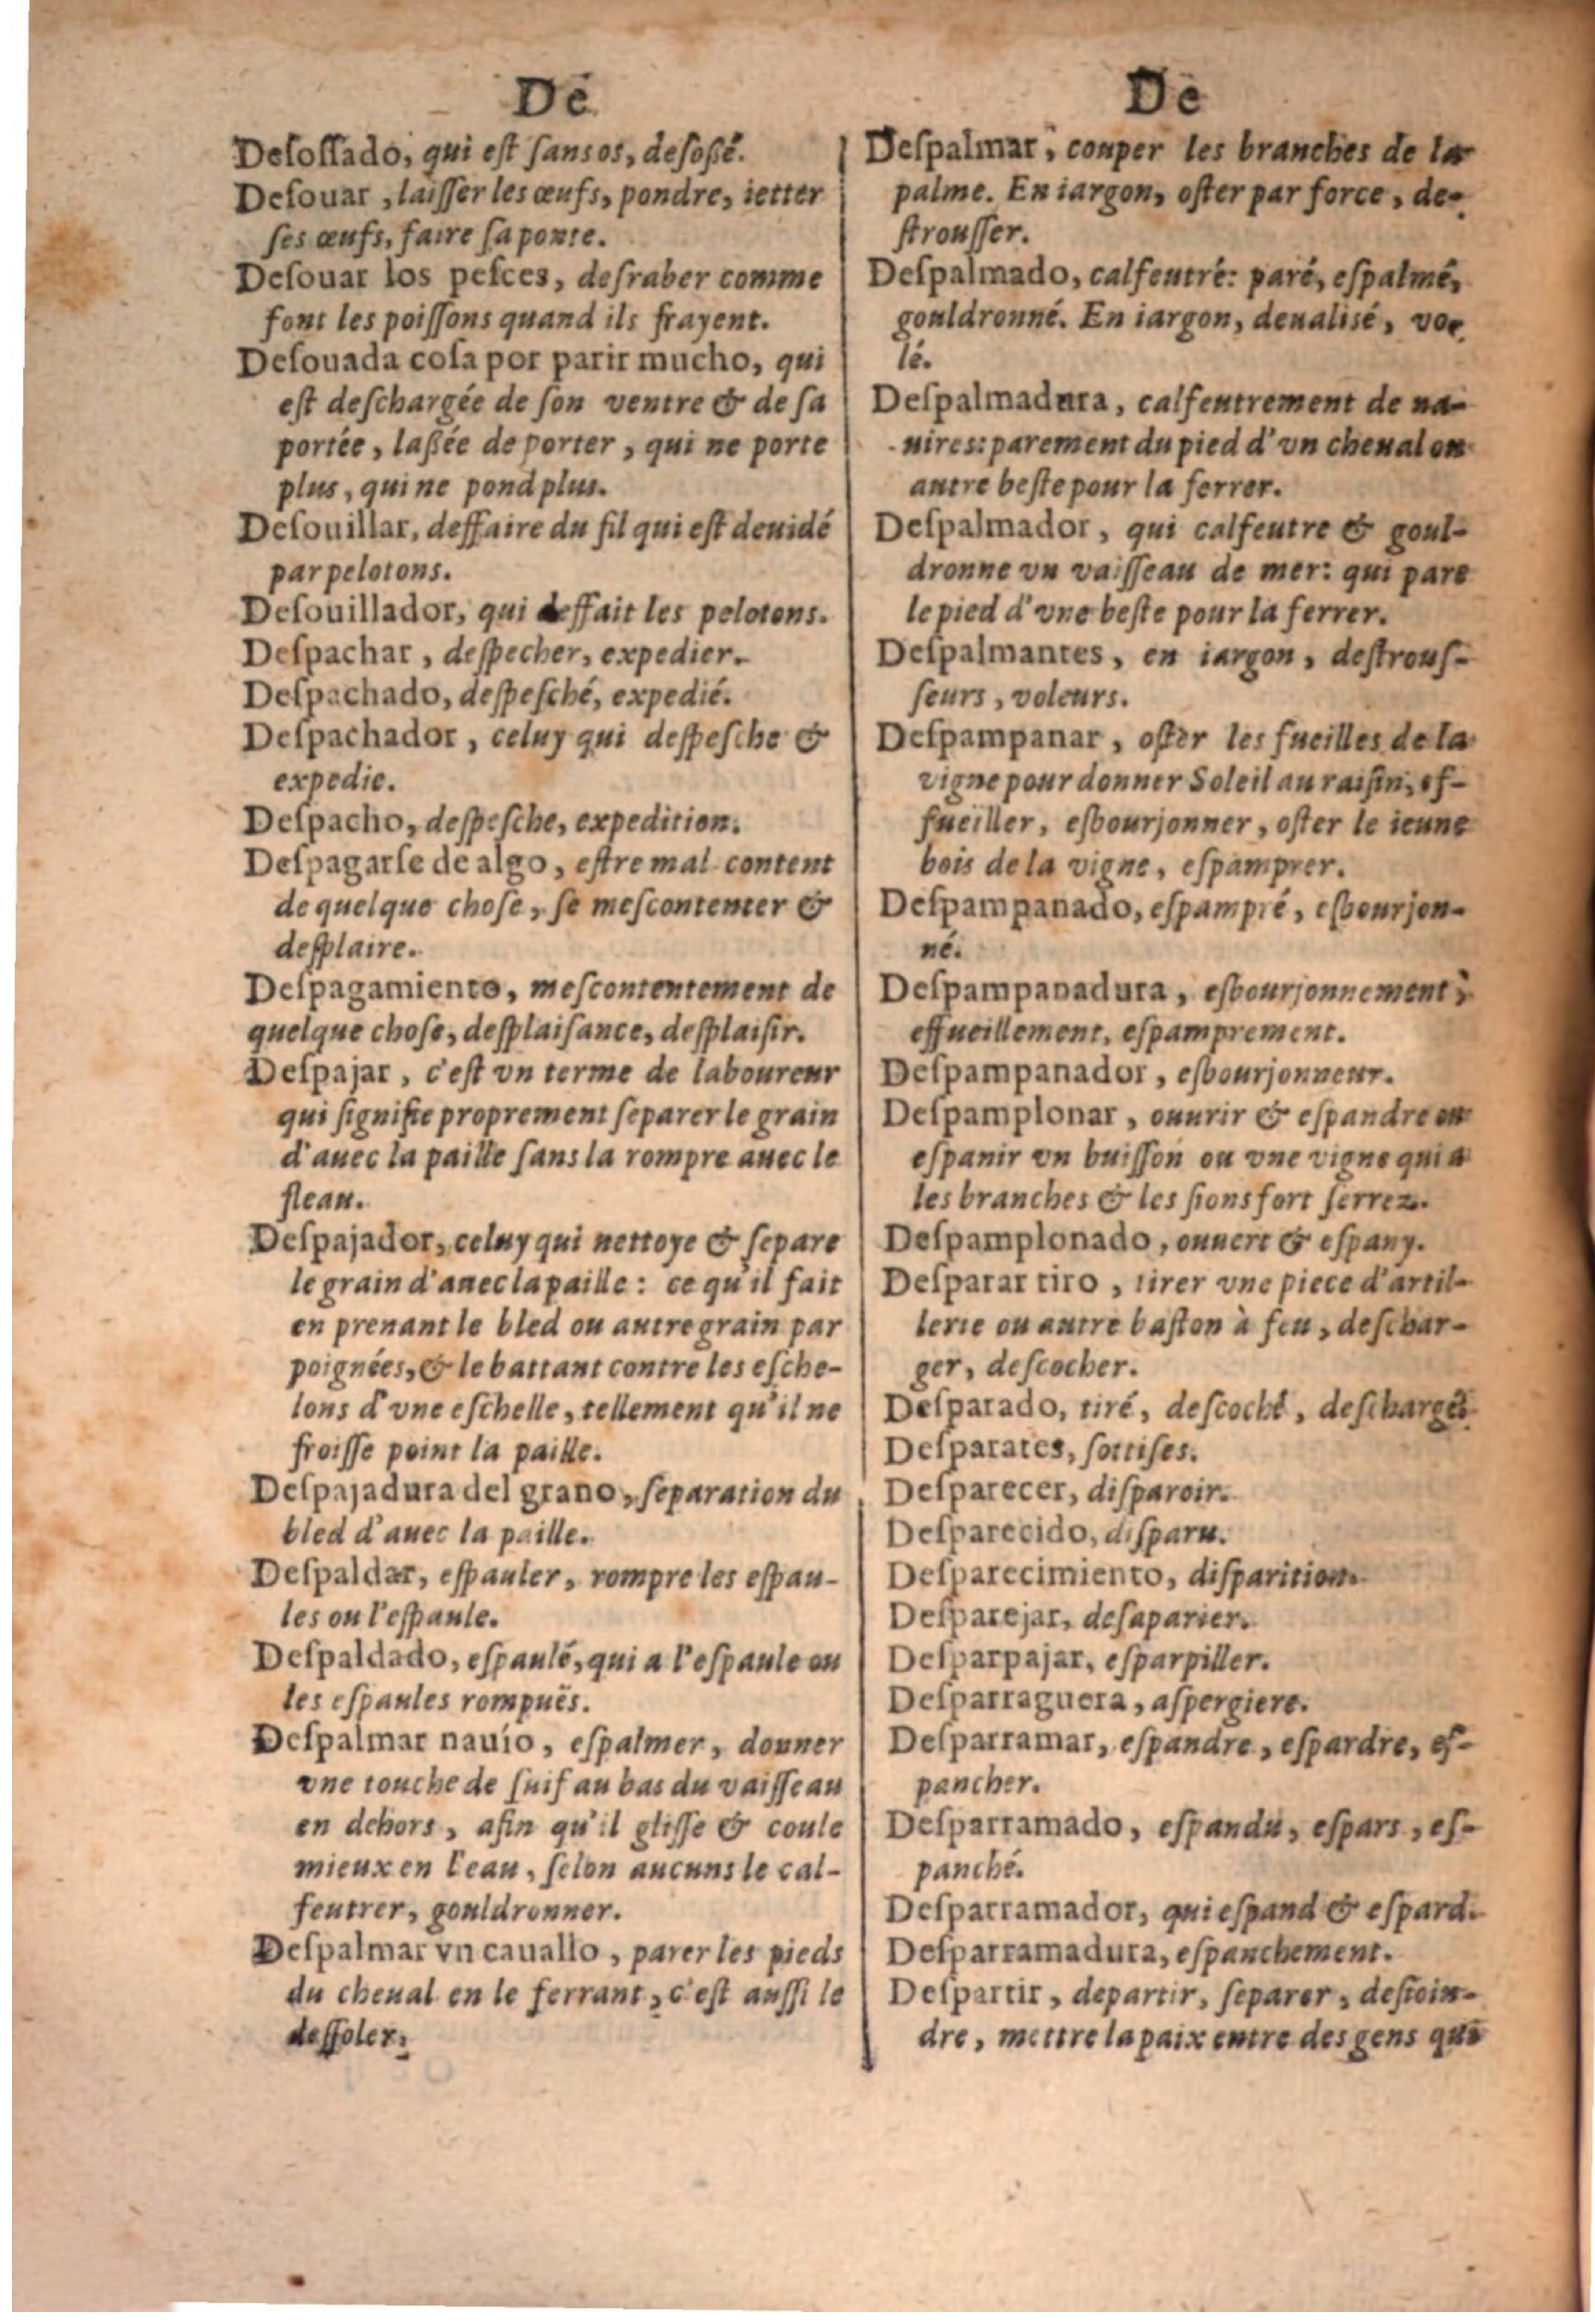 De
Deſoſſado, qui eſt ſans os, deſoßé.
Deſouar, laiſſer les œufs, pondre, ietter
ſes œufs, faire ſa ponte.
Deſouar los peſces, deſraber comme
font les poiſſons quand ils frayent.
Deſouada coſa por parir mucho, qui
eſt deſchargée de ſon ventre & de ſa
portée, laßée de porter, qui ne porte
plus, qui ne pond plus.
Deſouillar, deffaire du fil qui eſt deuidé
par pelotons.
Deſouillador, qui deffait les pelotons.
Deſpachar, deſpecher, expedier.
Deſpachado, deſpeſché, expedié.
Deſpachador, celuy qui deſpeſche &
expedie.
Deſpacho, deſpeſche, expedition.
Deſpagarſe de algo, eſtre mal content
de quelque choſe, ſe meſcontenter &
deſplaire.
Deſpagamiento, meſcontentement de
quelque choſe, deſplaiſance, deſplaiſir.
Deſpajar, c'eſt vn terme de laboureur
qui ſignifie proprement ſeparer le grain
d'auec la paille ſans la rompre auec le
fleau.
Deſpajador, celuy qui nettoye & ſepare
le grain d'auec la paille: ce qu'il fait
en prenant le bled ou autre grain par
poignées, & le battant contre les eſche-
lons d'vne eſchelle, tellement qu'il ne
froiſſe point la paille.
Deſpajadura del grano, ſeparation du
bled d'auec la paille.
Deſpaldar, eſpauler, rompre les eſpau-
les ou l'eſpaule.
Deſpaldado, eſpaulé, qui a l'eſpaule ou
les eſpaules rompuës.
Deſpalmar nauío, eſpalmer, donner
vne touche de ſuif au bas du vaiſſeau
en dehors, afin qu'il gliſſe & coule
mieux en l'eau, ſelon aucuns le cal-
feutrer, gouldronner.
Deſpalmar vn cauallo, parer les pieds
du cheual en le ferrant, c'eſt auſſi le
deſſoler.
De
Deſpalmar, couper les branches de la
palme. En iargon, oſter par force, de-
ſtrouſſer.
Deſpalmado, calfeutré: paré, eſpalmé,
gouldronné. En iargon, deualisé, vo-
lé.
Deſpalmadura, calfeutrement de na-
uires: parement du pied d'vn cheual ou
autre beſte pour la ferrer.
Deſpalmador, qui calfeutre & goul-
dronne vn vaiſſeau de mer: qui pare
le pied d'vne beſte pour la ferrer.
Deſpalmantes, en iargon, deſtrouſ-
ſeurs, voleurs.
Deſpampanar, oſter les fueilles de la
vigne pour donner Soleil au raiſin, ef-
fueiller, eſbourjonner, oſter le ieune
bois de la vigne, eſpamprer.
Deſpampanado, eſpampré, eſbourjon-
né.
Deſpampanadura, eſbourjonnement,
effueillement, eſpamprement.
Deſpampanador, eſbourjonneur.
Deſpamplonar, ouurir & eſpandre ou
eſpanir vn buiſſon ou vne vigne qui a
les branches & les ſions fort ſerrez.
Deſpamplonado, ouuert & eſpany.
Deſparar tiro, tirer vne piece d'artil-
lerie ou autre baſton à feu, deſchar-
ger, deſcocher.
Deſparado, tiré, deſcoché, deſchargé.
Deſparates, ſottiſes.
Deſparecer, diſparoir.
Deſparecido, diſparu.
Deſparecimiento, diſparition.
Deſparejar, deſaparier.
Deſparpajar, eſparpiller.
Deſparraguera, aſpergiere.
Deſparramar, eſpandre, eſpardre, eſ-
pancher.
Deſparramado, eſpandu, eſpars, eſ-
panché.
Deſparramador, qui eſpand & eſpard.
Deſparramadura, eſpanchement.
Deſpartir, departir, ſeparer, deſioin-
dre, mettre la paix entre des gens qui